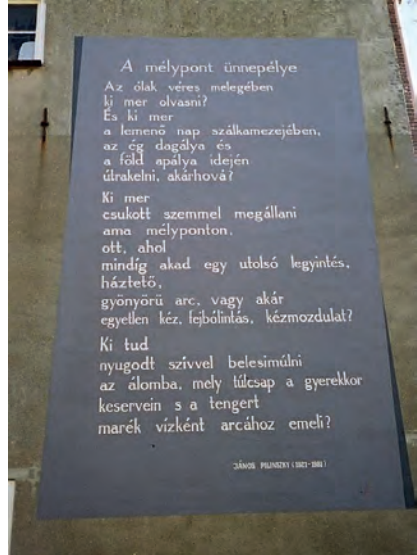 A mélypont ünnepélye
Az ólak véres melegében
ki mer olvasni?
És ki mer
a lemenő nap szálkamezejében,
az ég dagálya és
a föld apálya idején
útrakelni, akárhová?
Ki mer
csukott szemmel megállani
ama mélyponton,
ott, ahol
mindíg akad egy utolsó legyintés,
háztető,
gyönyörű arc, vagy akár
egyetlen kéz, fejbólintás, kézmozdulat?
Ki tud
nyugodt szívvel belesimúlni
az álomba, mely túlcsap a gyerekkor
keservein s a tengert
marék vízként arcához emeli?
JÁNOS PILINSZKY (1921-1981)